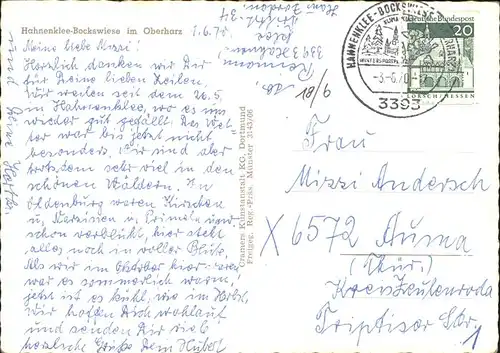 Hahnenklee-Bockswiese im Oberharz
1.6.70
Meine liebe Mizzi!
Herzlich danken wir Dir
für Deine lieben Zeilen.
Wir weilen seit dem 20.5.
in Hahnenklee, wo es uns
wieder gut gefällt. Das Wet-
ter war bis jetzt nicht
besonders. Wir sind aber
trotzdem sehr viel in den
schönen Wäldern. In
Oldenburg waren Kirschen
u. Narzissen u. Primeln usw.
schon verblüht, hier steht
alles noch in voller Blüte.
Als wir im Oktober hier waren,
war es sommerlich warm,
jetzt ist es kühl, wie im Herbst.
Wir hoffen Dich wohlauf
und senden Dir viele
herzliche Grüße Dein Hubert
und
Deine
Cramers Kunstanstalt KG, Dortmund
Freigeg. Reg.-Präs. Münster 2143/66
18/6
HAHNENKLEE-BOCKSWIESE
-3.-6.70
3393
Deutsche Bundespost
20
Frau
Mizzi Andersch
X 6572 Auma
(Thür.)
Kreis Zeulenroda
Triptiser Str.
1